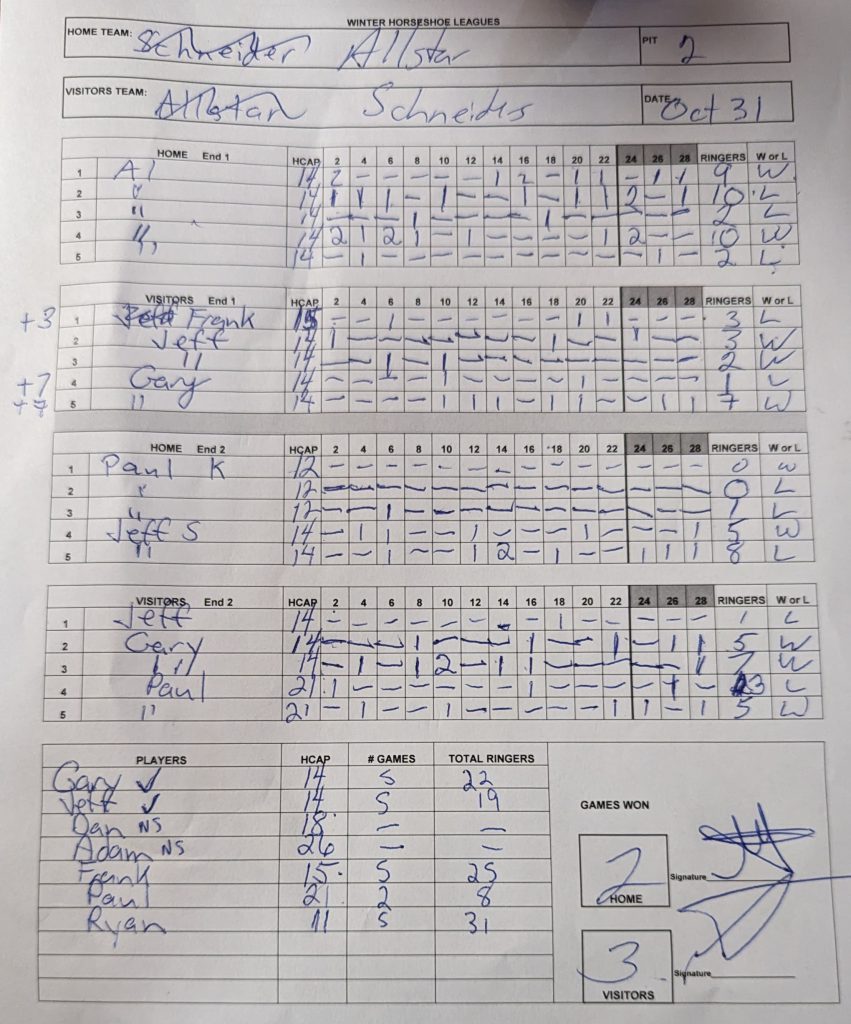 WINTER HORSESHOE LEAGUES
HOME TEAM: Schneider Allstar PIT 2
VISITORS TEAM: Allstar Schneider DATE Oct 31
HOME End 1 HCAP 2 4 6 8 10 12 14 16 18 20 22 24 26 28 RINGERS W or L
1 Al 14 2 - - - - - 1 2 - 1 1 - 1 1 9 W
2 " 14 1 1 1 - 1 - - 1 - 1 1 2 - 1 10 L
3 " 14 - - - 1 - - - - 1 - - - - - 2 L
4 " 14 2 1 2 1 - 1 - - - - 1 2 - - 10 W
5 " 14 - 1 - - - - - - - - - - 1 - 2 L
VISITORS End 1 HCAP 2 4 6 8 10 12 14 16 18 20 22 24 26 28 RINGERS W or L
+3 1 Jeff Frank 15 - - 1 - - - - - - 1 1 - - - 3 L
2 Jeff 14 1 - - - - - - - 1 - - 1 - - 3 W
3 " 14 - - 1 - 1 - - - - - - - - - 2 W
+7 4 Gary 14 - - - - - - - - - 1 - - - - 1 L
+7 5 " 14 - - - - 1 1 1 - 1 1 - - 1 1 7 W
HOME End 2 HCAP 2 4 6 8 10 12 14 16 18 20 22 24 26 28 RINGERS W or L
1 Paul K 12 - - - - - - - - - - - - - - 0 W
2 " 12 - - - - - - - - - - - - - - 0 L
3 " 12 - - 1 - - - - - - - - - - - 1 L
4 Jeff S 14 - 1 1 - - 1 - - - 1 - - - 1 5 W
5 " 14 - - 1 - - 1 2 - 1 - - 1 1 1 8 L
VISITORS End 2 HCAP 2 4 6 8 10 12 14 16 18 20 22 24 26 28 RINGERS W or L
1 Jeff 14 - - - - - - - - 1 - - - - - 1 L
2 Gary 14 - - - 1 - - - 1 - - 1 - 1 1 5 W
3 " 14 - 1 - 1 2 - 1 1 - - - - - 1 7 W
4 Paul 21 1 - - - - - - 1 - - - - 1 - 3 L
5 " 21 - 1 - - 1 - - - - - 1 1 - 1 5 W
PLAYERS HCAP # GAMES TOTAL RINGERS
Gary ✓ 14 5 22
Jeff ✓ 14 5 19
Dan NS 18 - -
Adam NS 26 - -
Frank 15 5 25
Paul 21 2 8
Ryan 11 5 31
GAMES WON
2
HOME
Signature
3
VISITORS
Signature